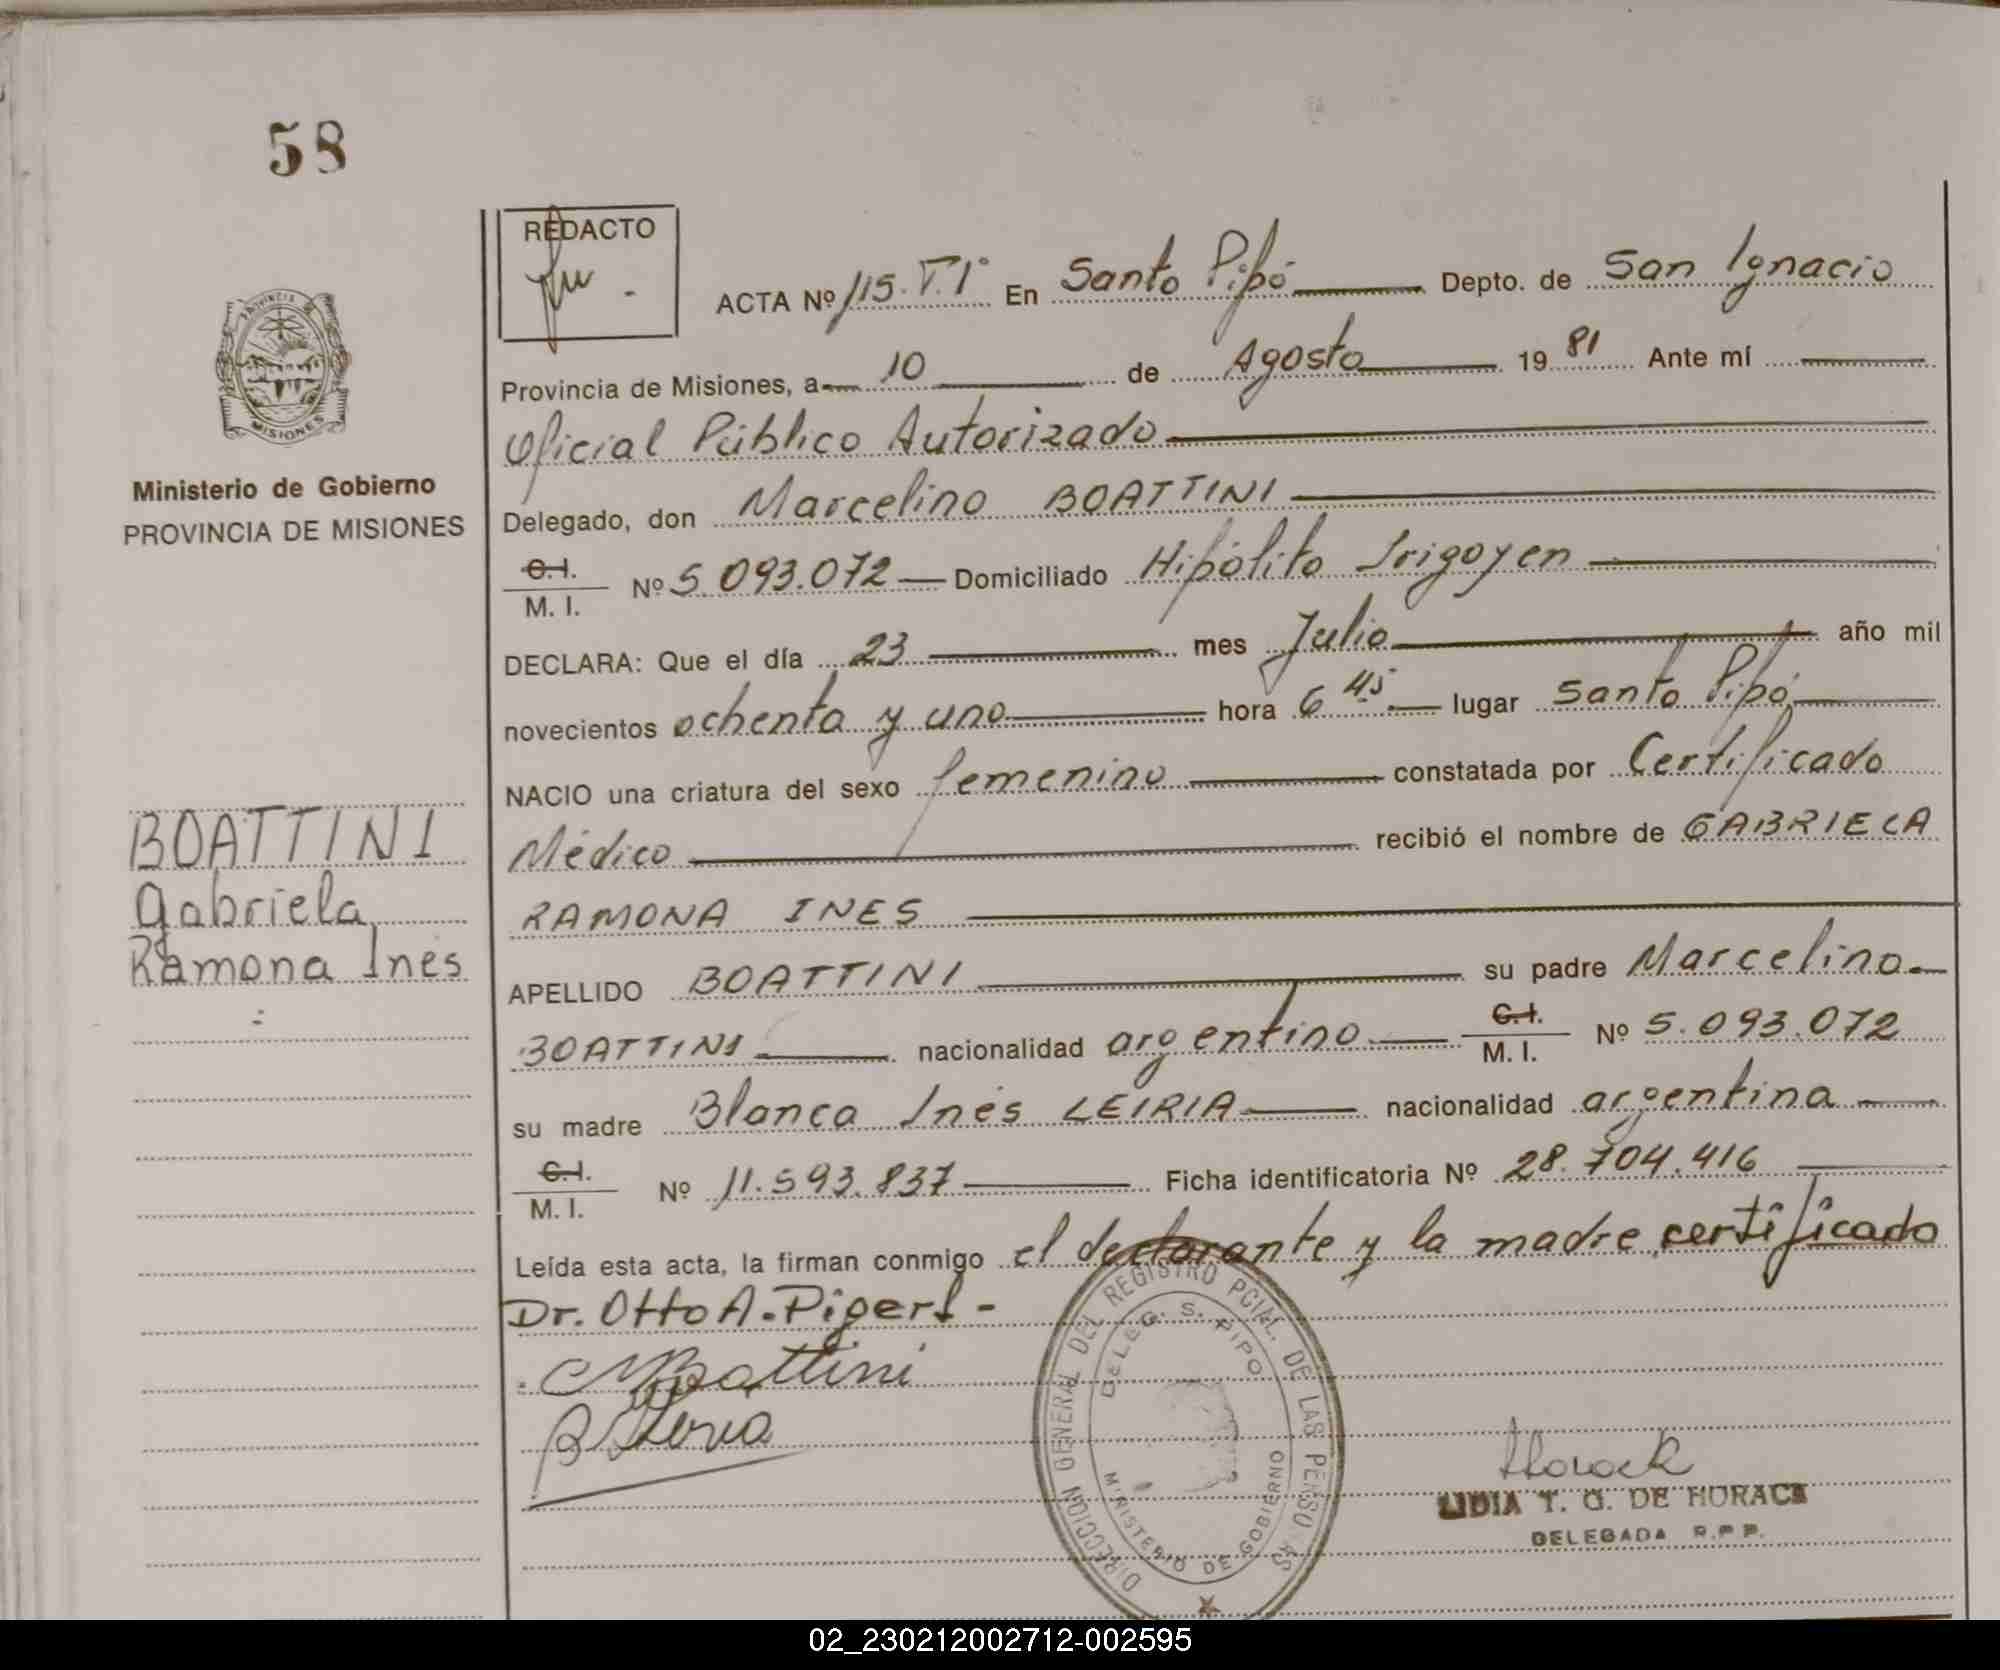 58
REDACTO
ACTA Nº 115. T.1° En Santo Pipó Depto. de San Ignacio
Provincia de Misiones, a 10 de Agosto 1981 Ante mí
Oficial Público Autorizado
Delegado, don Marcelino BOATTINI
C.I. M. I. Nº 5.093.072 Domiciliado Hipólito Irigoyen
DECLARA: Que el día 23 mes Julio año mil
novecientos ochenta y uno hora 6 45 lugar Santo Pipó
NACIO una criatura del sexo femenino constatada por Certificado
Médico recibió el nombre de GABRIELA
RAMONA INES
APELLIDO BOATTINI su padre Marcelino
BOATTINI nacionalidad argentino C.I. M. I. Nº 5.093.072
su madre Blanca Inés LEIRIA nacionalidad argentina
C.I. M. I. Nº 11.593.837 Ficha identificatoria Nº 28.704.416
Leída esta acta, la firman conmigo el declarante y la madre certificado
Dr. Otto A. Pigerl -
PROVINCIA DE
MISIONES
Ministerio de Gobierno
PROVINCIA DE MISIONES
BOATTINI
Gabriela
Ramona Inés
DIRECCION GENERAL DEL REGISTRO PCIAL. DE LAS PERSONAS
DELEG. S. PIPO
MINISTERIO DE GOBIERNO
LIDIA T. G. DE HORACK
DELEGADA R.P.P.
02_230212002712-002595